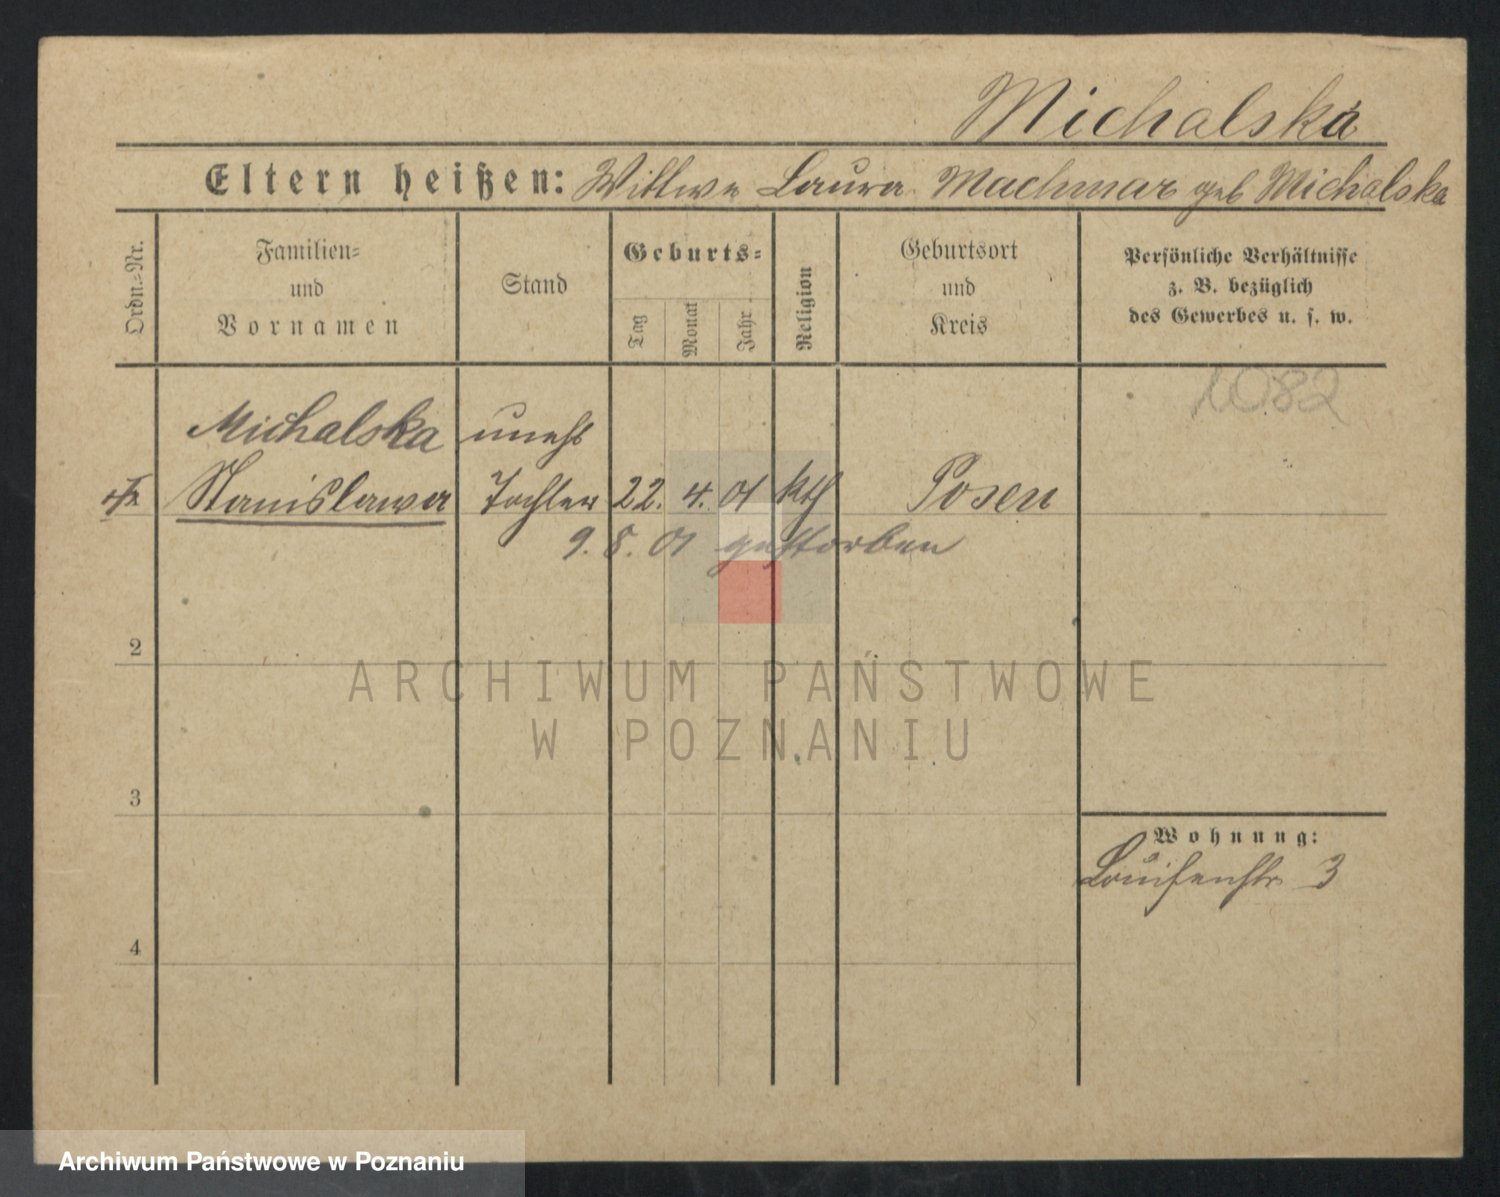 Michalska
Eltern heißen: Wittwe Laura Machmar geb Michalska
Ordn.=Nr.
Familien= und Vornamen
Stand
Geburts=
Tag
Monat
Jahr
Religion
Geburtsort und Kreis
Persönliche Verhältnisse z. B. bezüglich des Gewerbes u. s. w.
1082
Michalska unehl
Stanislawa Tochter 22. 4. 01 kth Posen
9. 8. 01 gestorben
2
ARCHIWUM PAŃSTWOWE
W POZNANIU
3
Wohnung:
Louisenstr 3
4
Archiwum Państwowe w Poznaniu